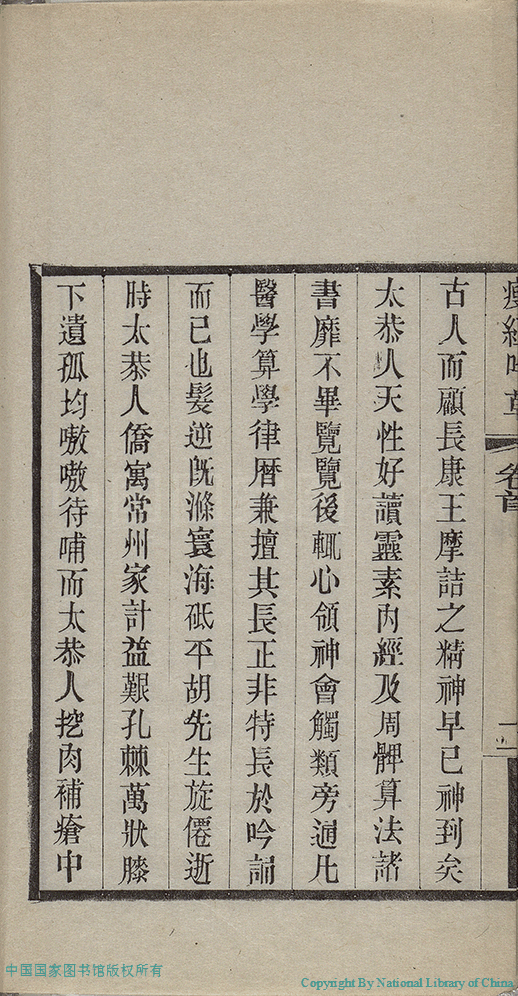 卷首
古人而顧長康王摩詰之精神早已神到矣
太恭人天性好讀靈素內經及周髀算法諸
書靡不畢覽覽後輒心領神會觸類旁通凡
醫學算學律厤兼擅其長正非特長於吟詞
而已也髮逆旣滌寰海砥平胡先生旋僊逝
時太恭人僑寓常州家計益艱孔棘萬狀膝
下遺孤均嗷嗷待哺而太恭人挖肉補瘡中
中国国家图书馆版权所有
Copyright By National Library of China